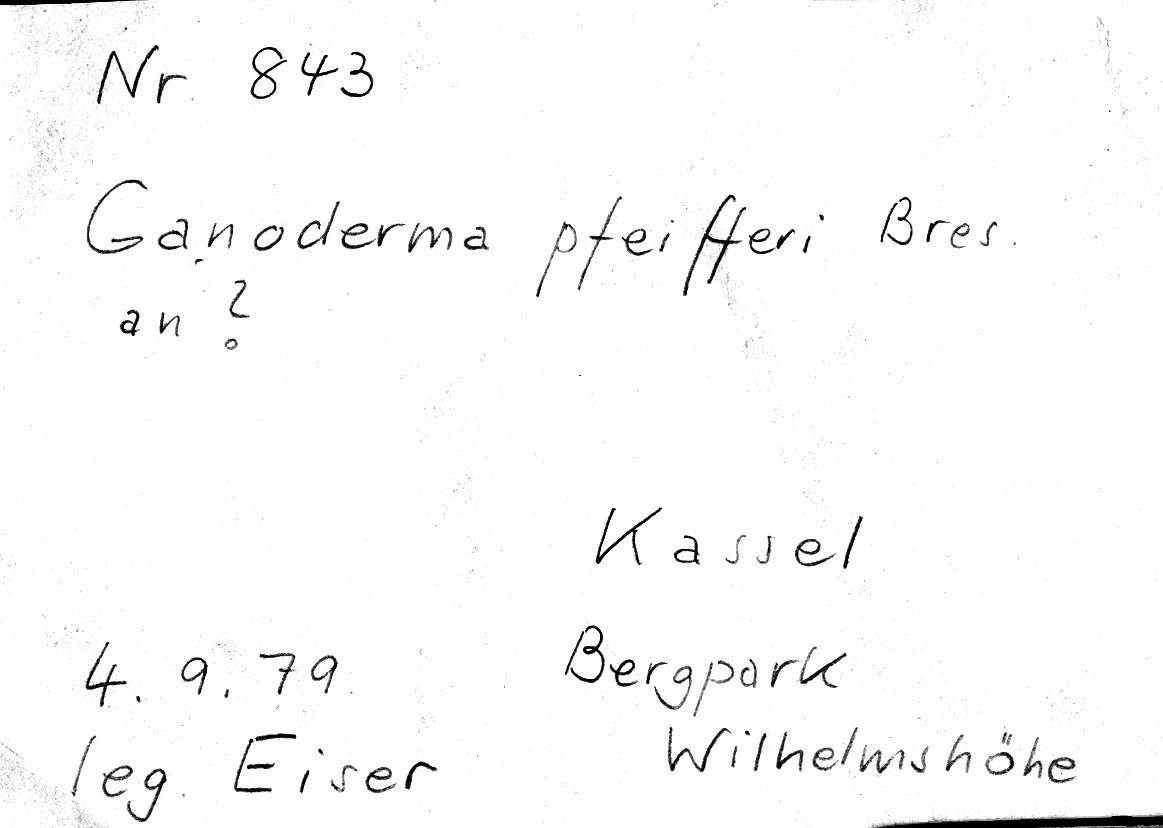 Nr 843
Ganoderma pfeifferi Bres.
an ?
Kassel
4.9.79 Bergpark
leg. Eiser Wilhelmshöhe